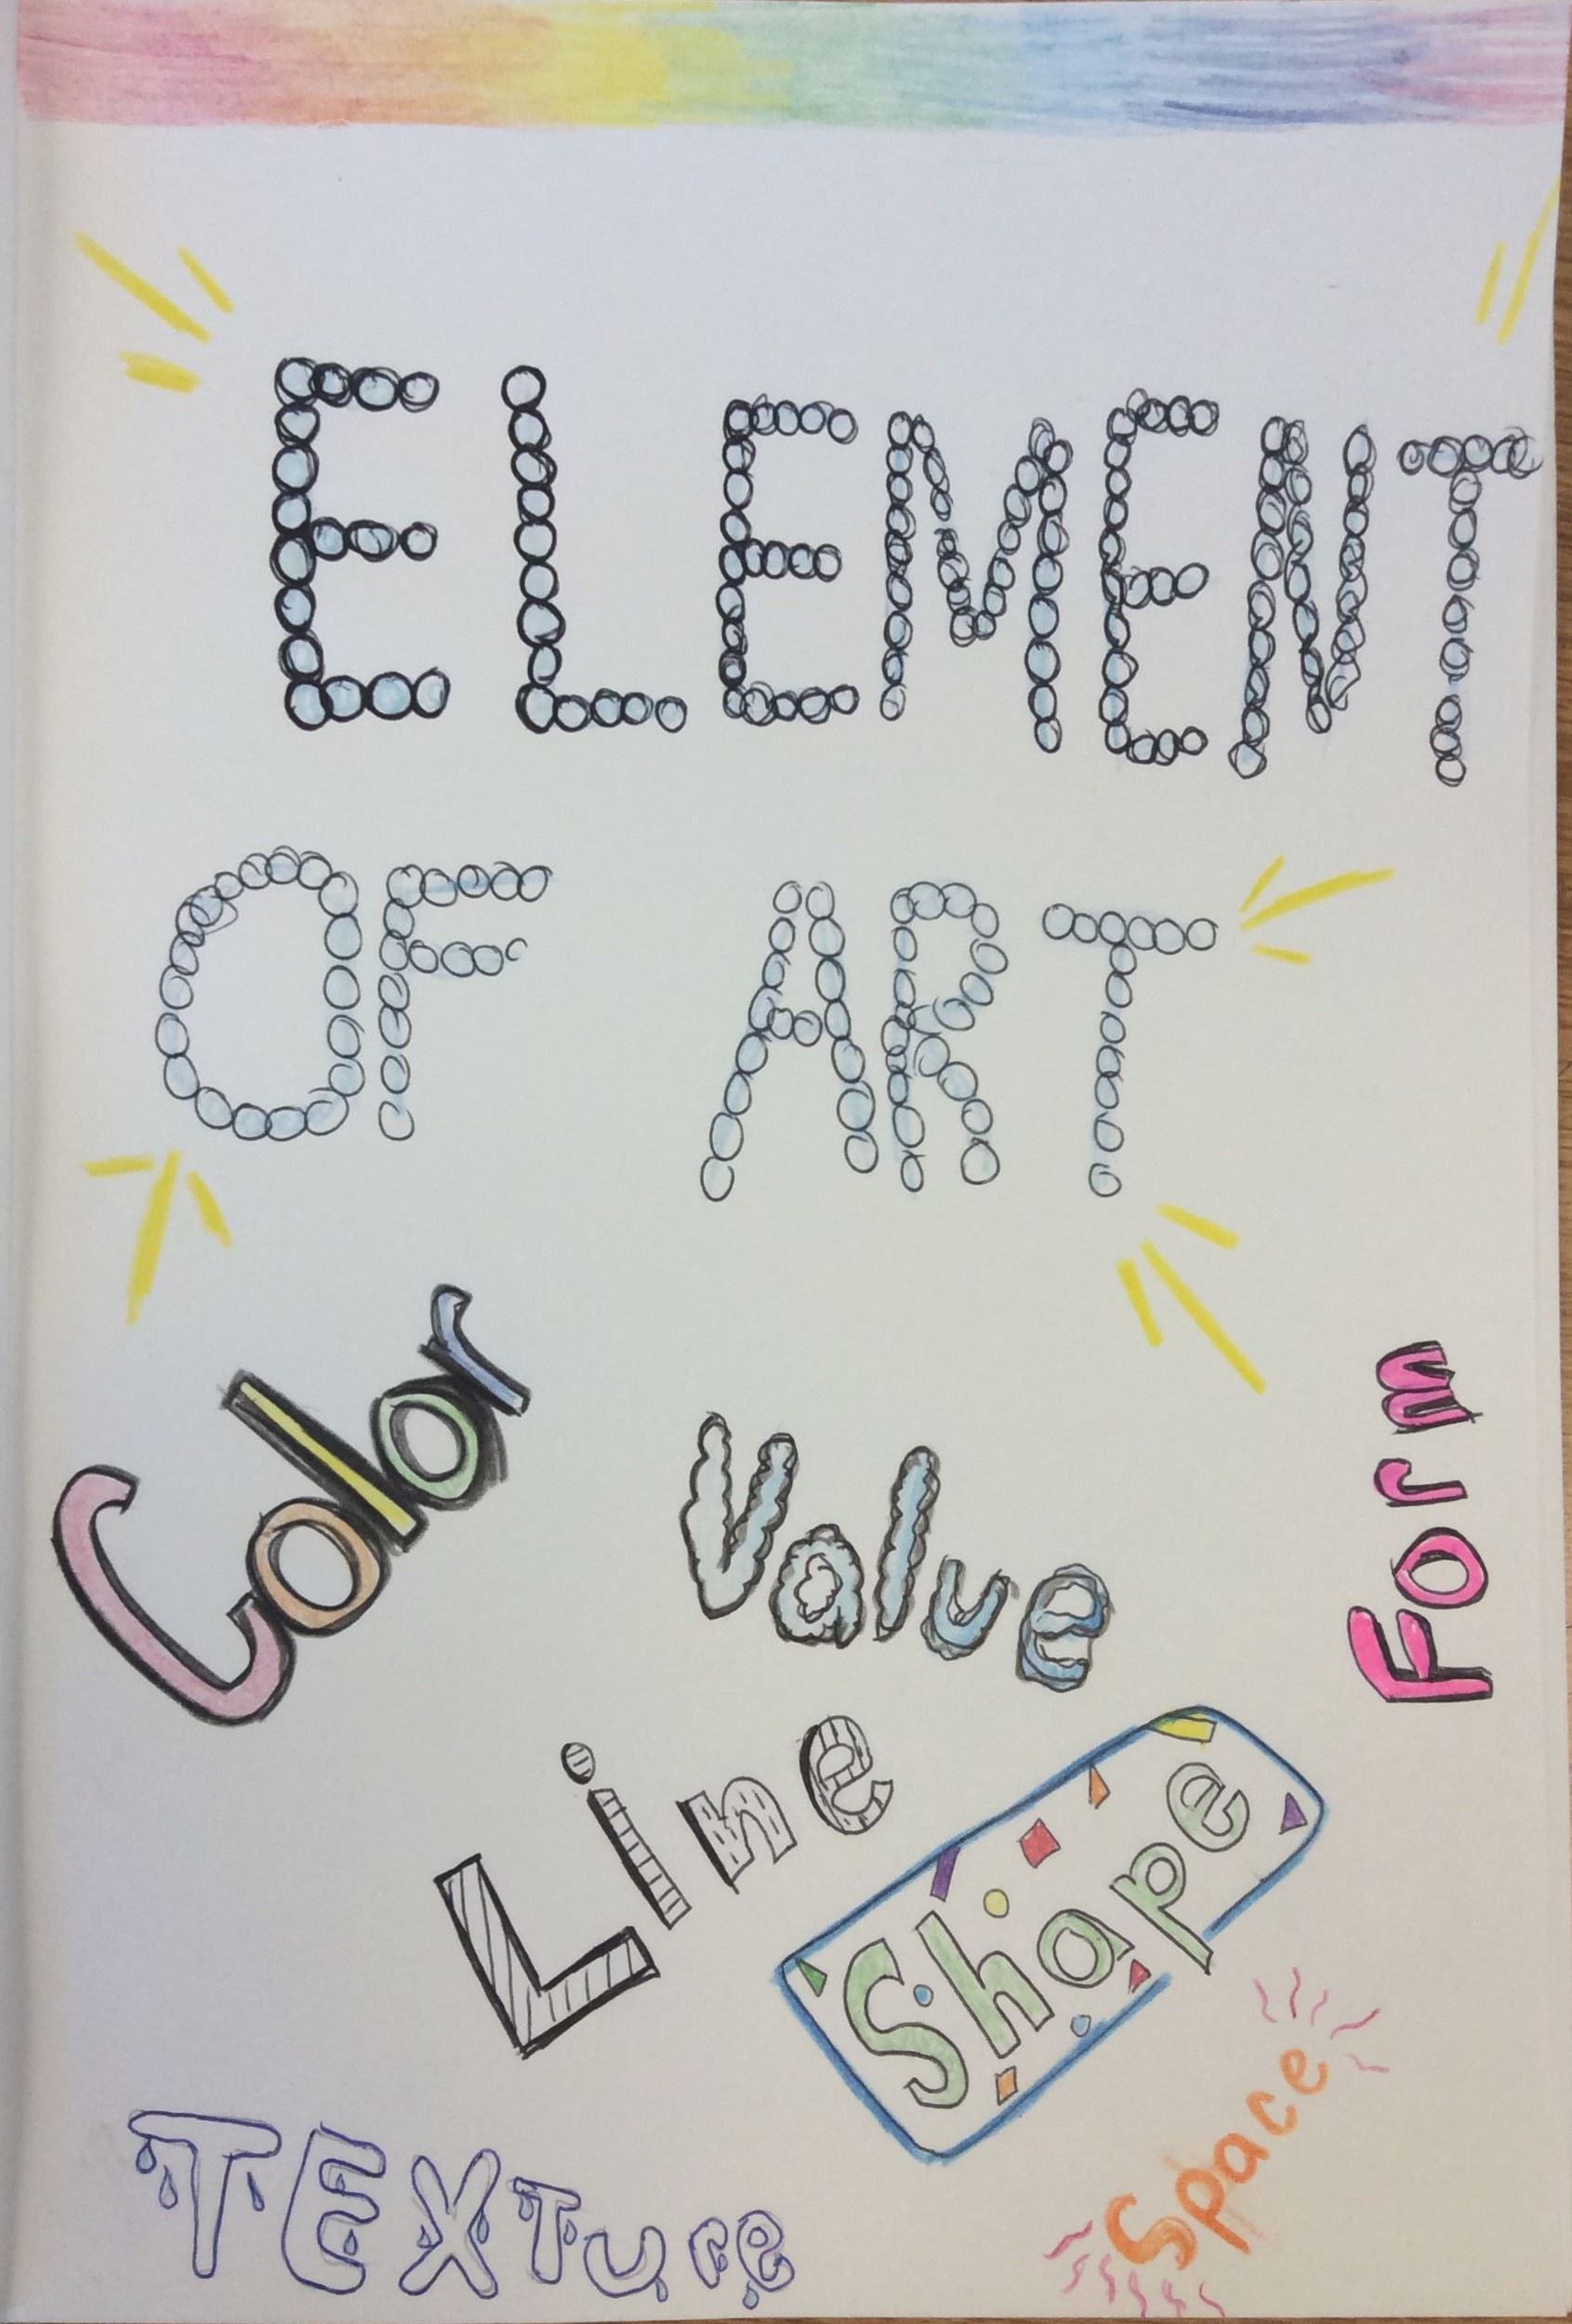 ELEMENT
OF ART
Color
Value
Form
Line
Shape
Space
TEXTure